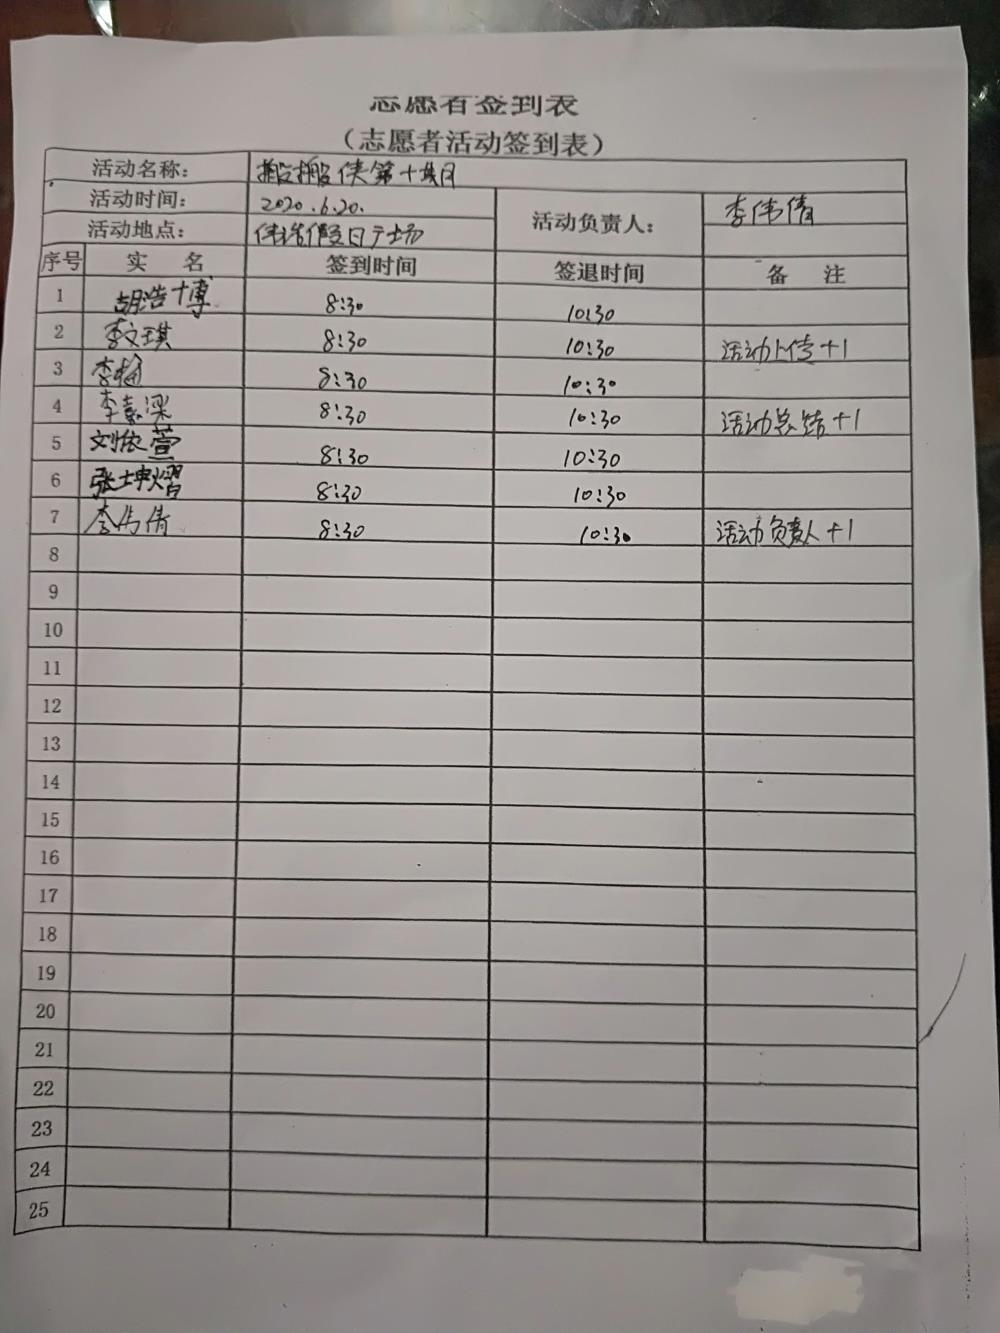 志愿者签到表
（志愿者活动签到表）
活动名称： 搬搬侠第十期
活动时间： 2020.6.20. 活动负责人： 李伟倩
活动地点： 伟浩假日广场
序号 实 名 签到时间 签退时间 备 注
1 胡浩博 8:30 10:30
2 李文琪 8:30 10:30 活动上传+1
3 李梅 8:30 10:30
4 李嘉梁 8:30 10:30 活动总结+1
5 刘依萱 8:30 10:30
6 张坤熠 8:30 10:30
7 李伟倩 8:30 10:30 活动负责人+1
8
9
10
11
12
13
14
15
16
17
18
19
20
21
22
23
24
25